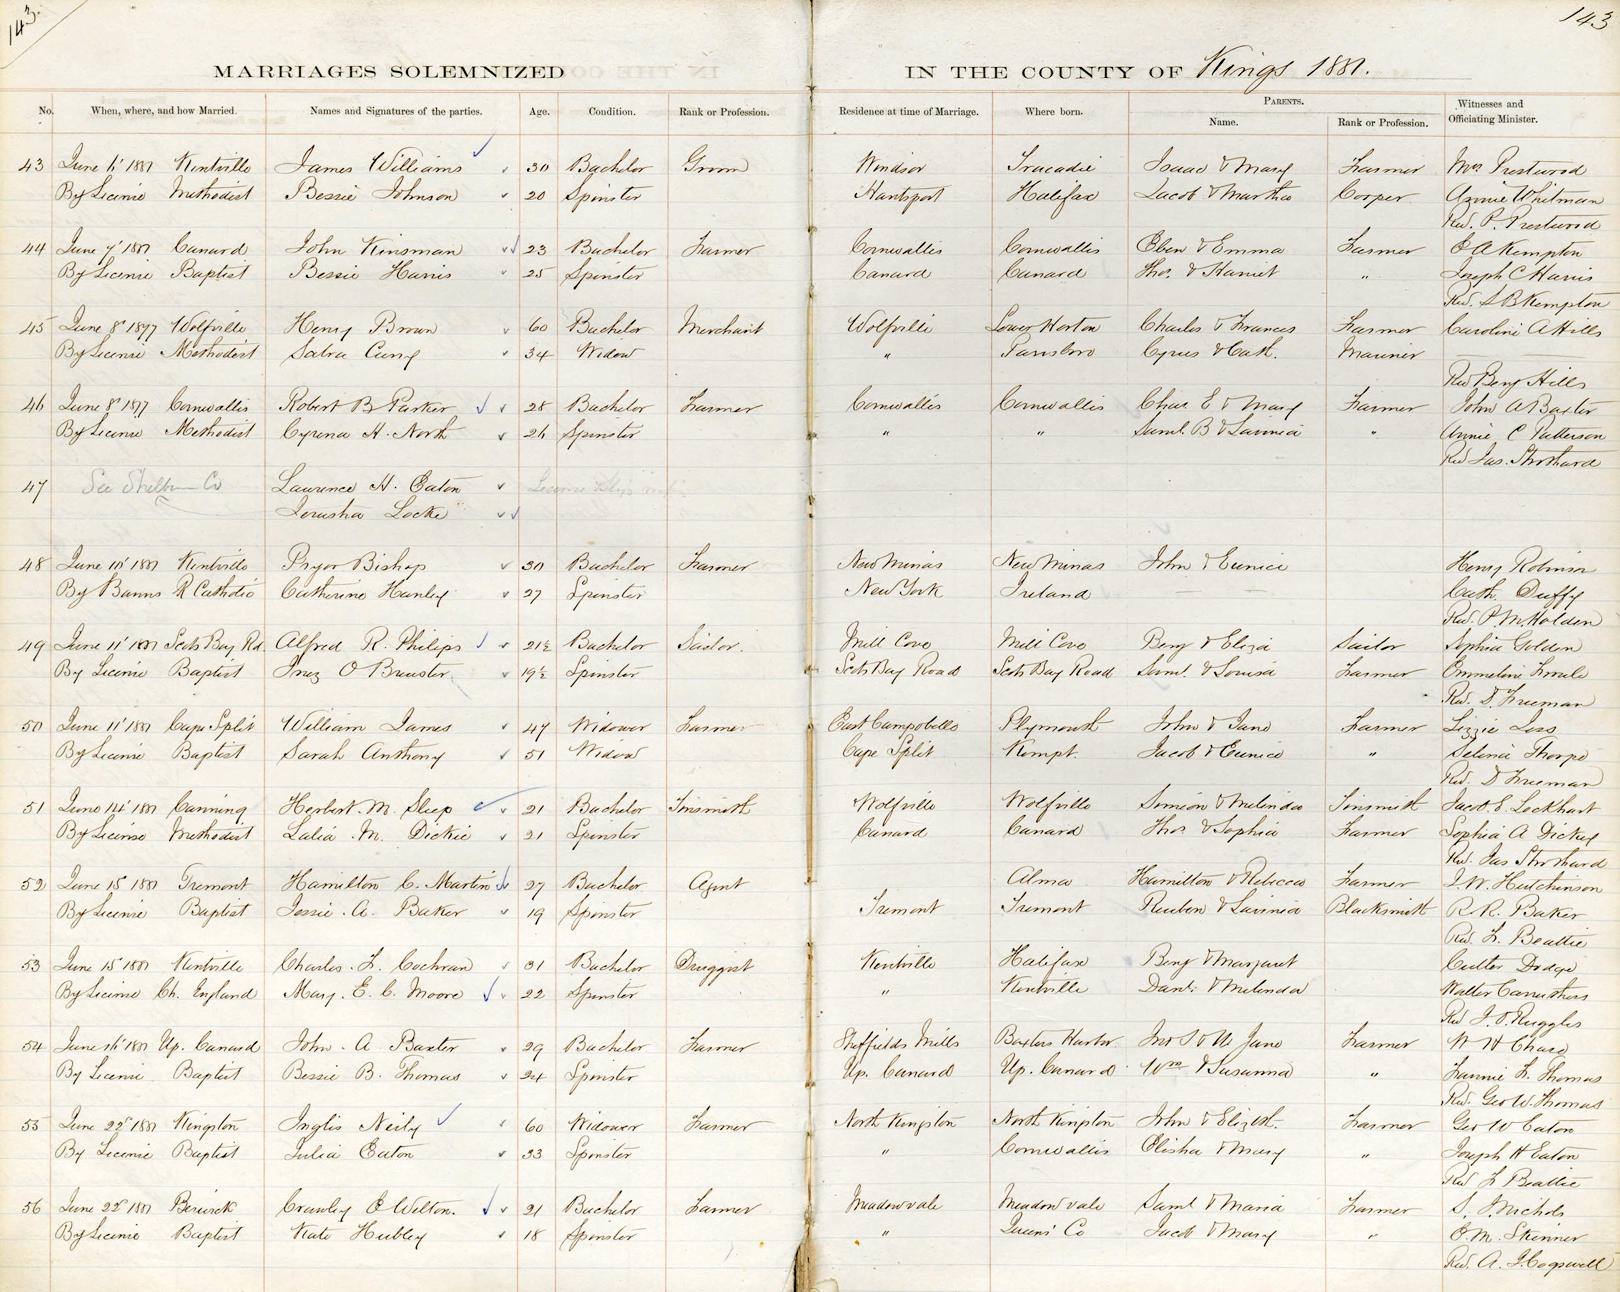 143.
143
MARRIAGES SOLEMNIZED IN THE COUNTY OF Kings 1881.
No. When, where, and how Married. Names and Signatures of the parties. Age. Condition. Rank or Profession. Residence at time of Marriage. Where born. PARENTS. Name. Rank or Profession. Witnesses and Officiating Minister.
43 June 6' 1881 Kentville James Williams 30 Bachelor Groom Windsor Tracadie Isaac & Mary Farmer Mrs Prestwood
By License Methodist Bessie Johnson 20 Spinster Hantsport Halifax Jacob & Martha Cooper Annie Whitman
Rev. P. Prestwood
44 June 7' 1881 Canard John Kinsman 23 Bachelor Farmer Cornwallis Cornwallis Eben & Emma Farmer E A Kempton
By License Baptist Bessie Harris 25 Spinster Canard Canard Thos. & Harriet " Joseph C Harris
Rev. S B Kempton
45 June 8' 1877 Wolfville Henry Brown 60 Bachelor Merchant Wolfville Lower Horton Charles & Frances Farmer Caroline A Hills
By License Methodist Sabra Cuny 34 Widow " Parrsboro Cyrus & Cath. Mariner
Rev Benj Hills
46 June 8' 1877 Cornwallis Robert B Parker 28 Bachelor Farmer Cornwallis Cornwallis Chas. E & Mary Farmer John A Baxter
By License Methodist Cyrena H. North 26 Spinster " " Saml. B & Lavinia " Annie C Patterson
Rev. Jas. Strothard
47 See Shelburn Co Laurence H. Eaton License
Jerusha Locke
48 June 10' 1881 Kentville Pryor Bishop 30 Bachelor Farmer New Minas New Minas John & Eunice Henry Robinson
By Banns R Catholic Catherine Hanley 27 Spinster New York Ireland — — Cath. Duffy
Rev. P. M. Holden
49 June 11' 1881 Scots Bay Rd. Alfred R. Philips 21½ Bachelor Sailor. Mill Cove Mill Cove Benj & Eliza Sailor Sophia Golden
By License Baptist Inez O Brewster 19½ Spinster Scots Bay Road Scots Bay Road Saml. & Louisa Farmer Emmeline
Rev. D. Freeman
50 June 11' 1881 Cape Split William James 47 Widower Farmer East Campobello Plymouth John & Jane Farmer Lizzie Loss
By License Baptist Sarah Anthony 51 Widow Cape Split Kempt. Jacob & Eunice " Selenia Thorpe
Rev. D Freeman
51 June 14' 1881 Canning Herbert M. Sleep 21 Bachelor Tinsmith Wolfville Wolfville Simeon & Melinda Tinsmith Jacob E. Lockhart
By License Methodist Lalia M. Dickie 21 Spinster Canard Canard Thos. & Sophia Farmer Sophia A Dickey
Rev. Jas Strothard
52 June 15 1881 Tremont Hamilton C. Martin 27 Bachelor Agent Alma Hamilton & Rebecca Farmer J. W. Hutchinson
By License Baptist Jessie. A. Baker 19 Spinster Tremont Tremont Reuben & Lavinia Blacksmith R. R. Baker
Rev. F. Beattie
53 June 15' 1881 Kentville Charles. F. Cochran 31 Bachelor Druggist Kentville Halifax Benj & Margaret Cutler Dodge
By License Ch. England Mary. E. C. Moore 22 Spinster " Kentville Danl. & Melinda Walter Carruthers
Rev J. O. Ruggles
54 June 16' 1881 Up. Canard John. A. Baxter 29 Bachelor Farmer Sheffields Mills Baxters Harbor Jno S & M Jane Farmer W H Chase
By License Baptist Bessie B. Thomas 24 Spinster Up. Canard Up. Canard Wm & Susanna " Fannie F. Thomas
Rev. Geo W. Thomas
55 June 22' 1881 Kingston Inglis Neily 60 Widower Farmer North Kingston North Kingston John & Elizbth. Farmer Geo W Eaton
By License Baptist Julia Eaton 33 Spinster " Cornwallis Elisha & Mary " Joseph H Eaton
Rev F Beattie
56 June 22' 1881 Berwick Crawley E Welton. 21 Bachelor Farmer Meadowvale Meadowvale Saml & Maria Farmer S. J. Nichols
By License Baptist Kate Hubley 18 Spinster " Queens Co Jacob & Mary " E. M. Skinner
Rev. A. J. Cogswell